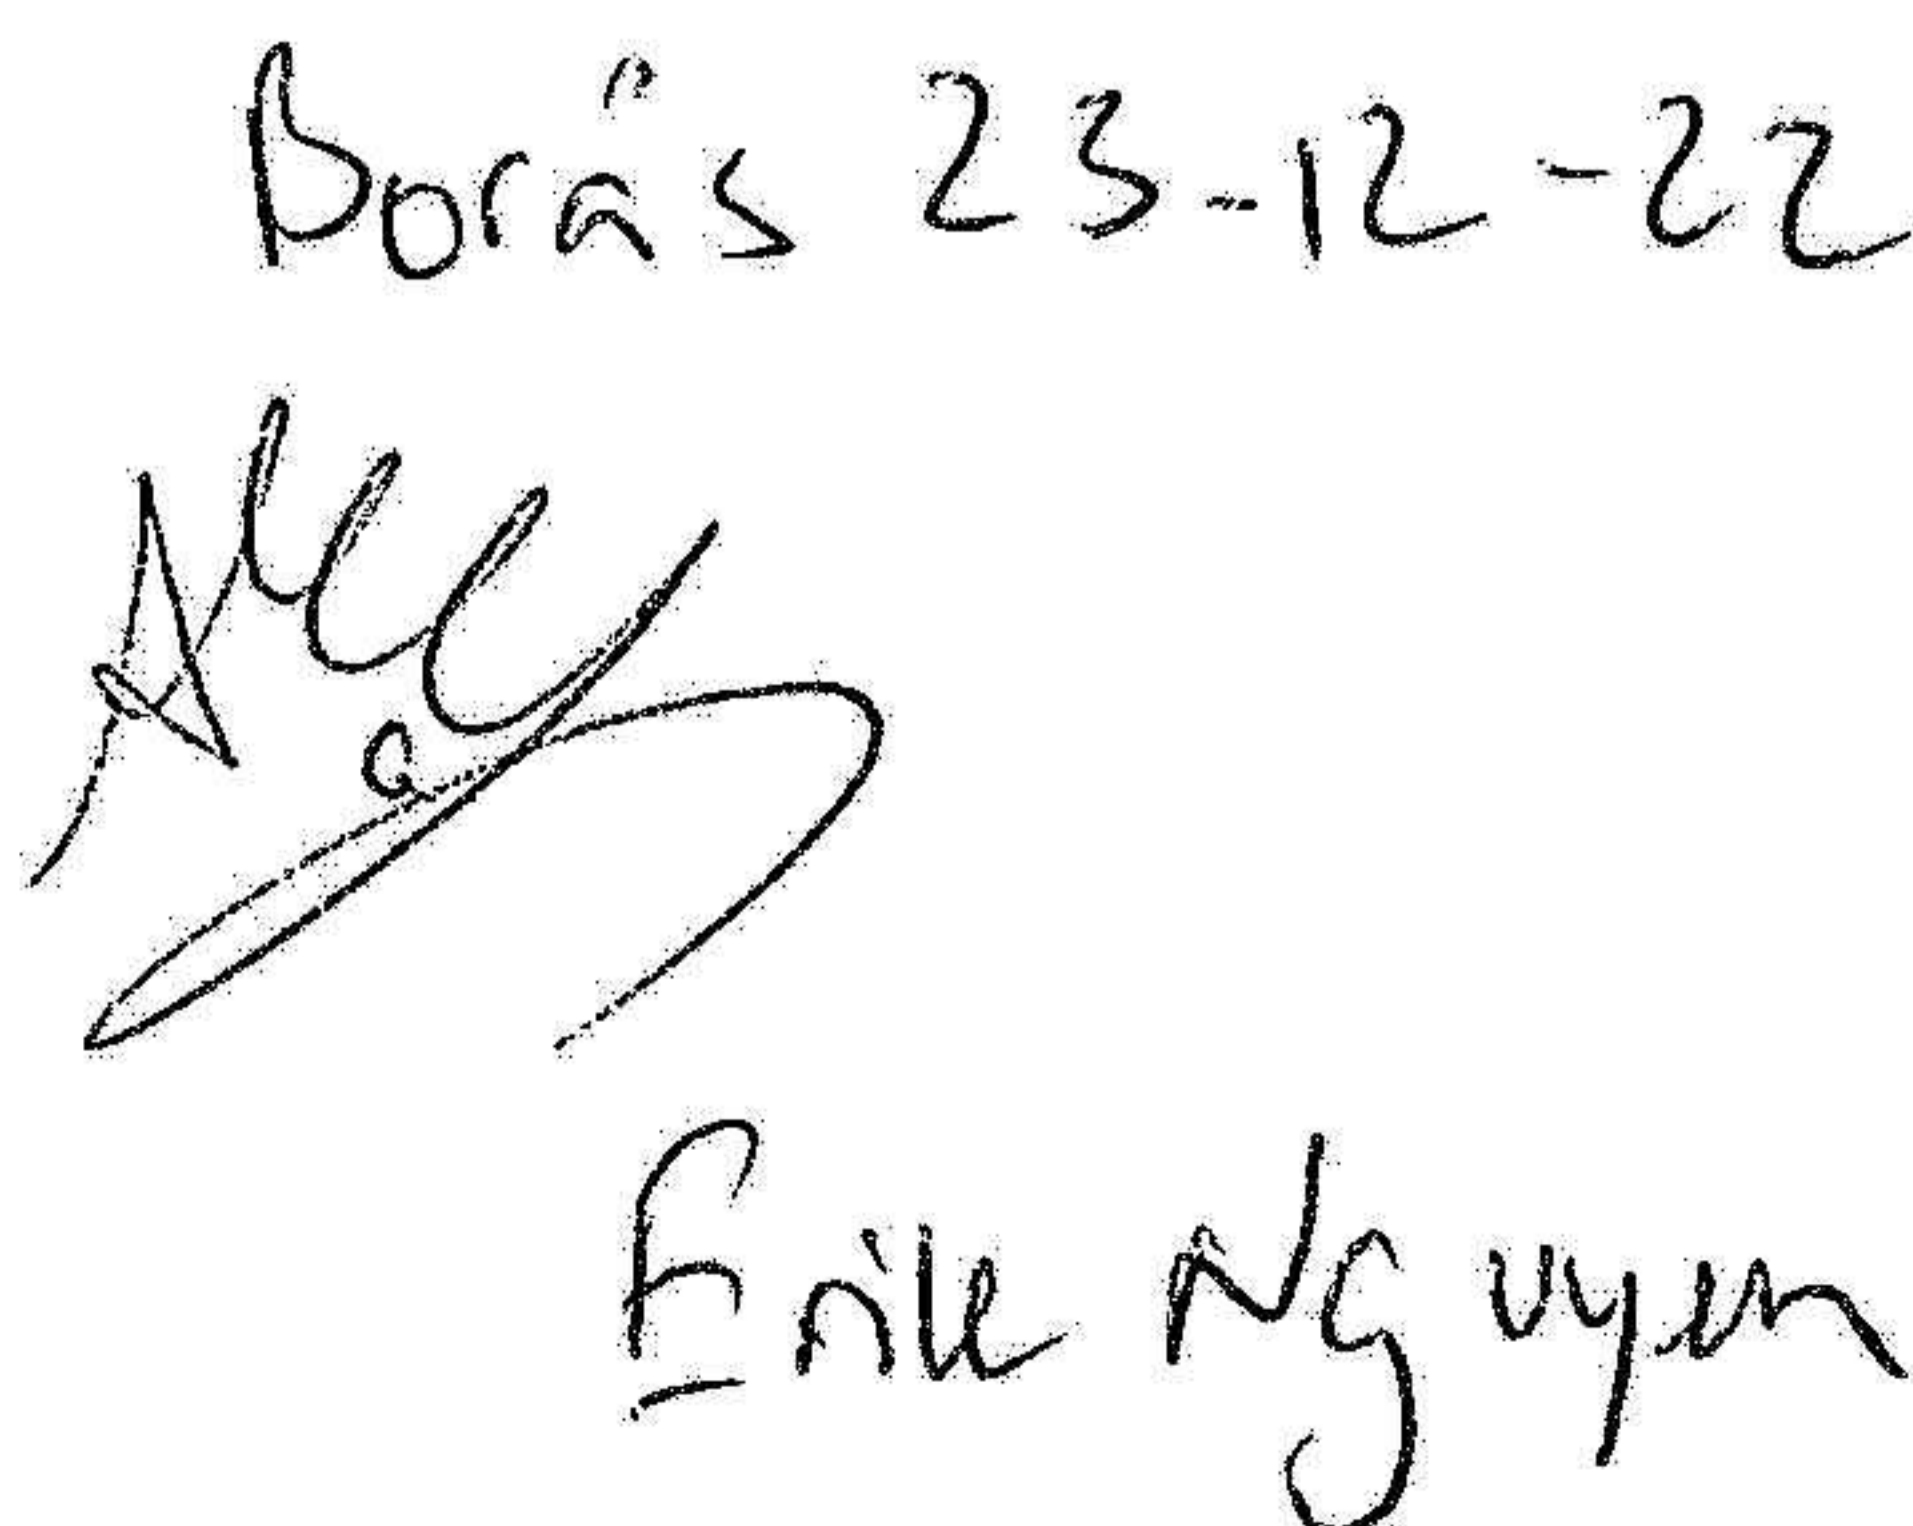 Borås 23-12-22
Erik Nguyen